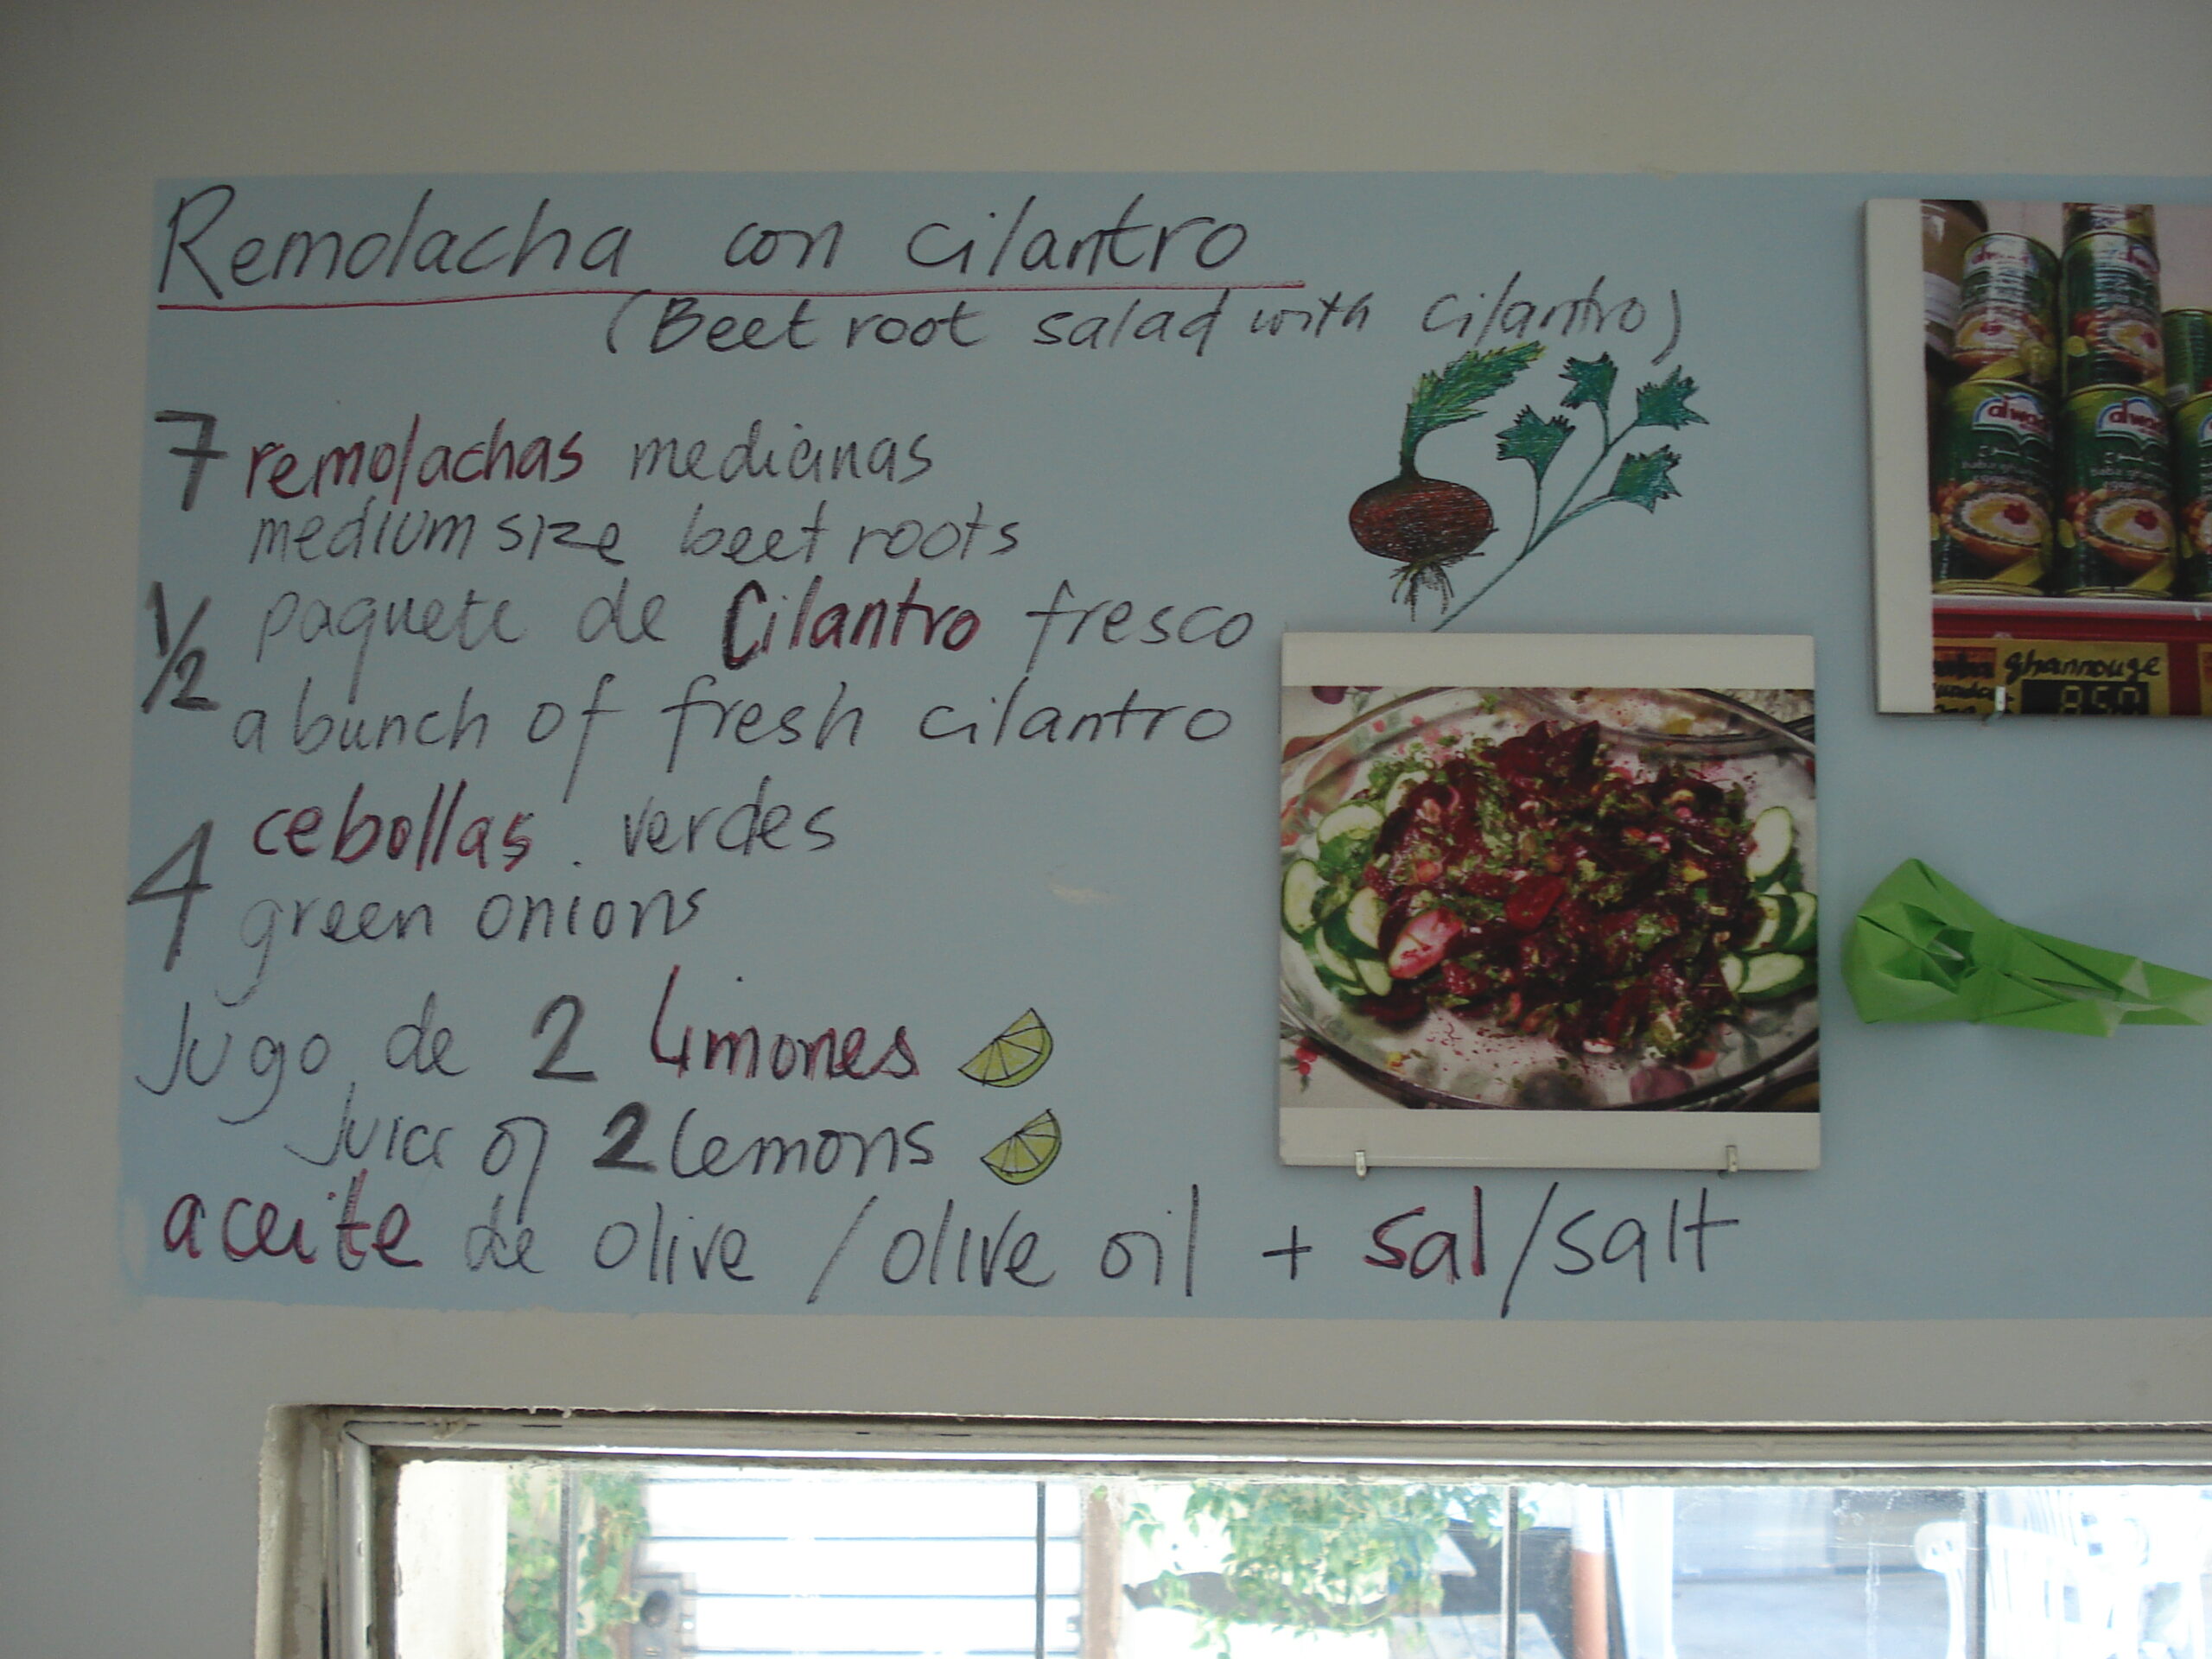 Remolacha con cilantro
(Beet root salad with cilantro)
7 remolachas medianas
medium size beet roots
1/2 paquete de Cilantro fresco
a bunch of fresh cilantro
4 cebollas verdes
green onions
Jugo de 2 limones
Juice of 2 lemons
aceite de olive / olive oil + sal/salt
ghannouge